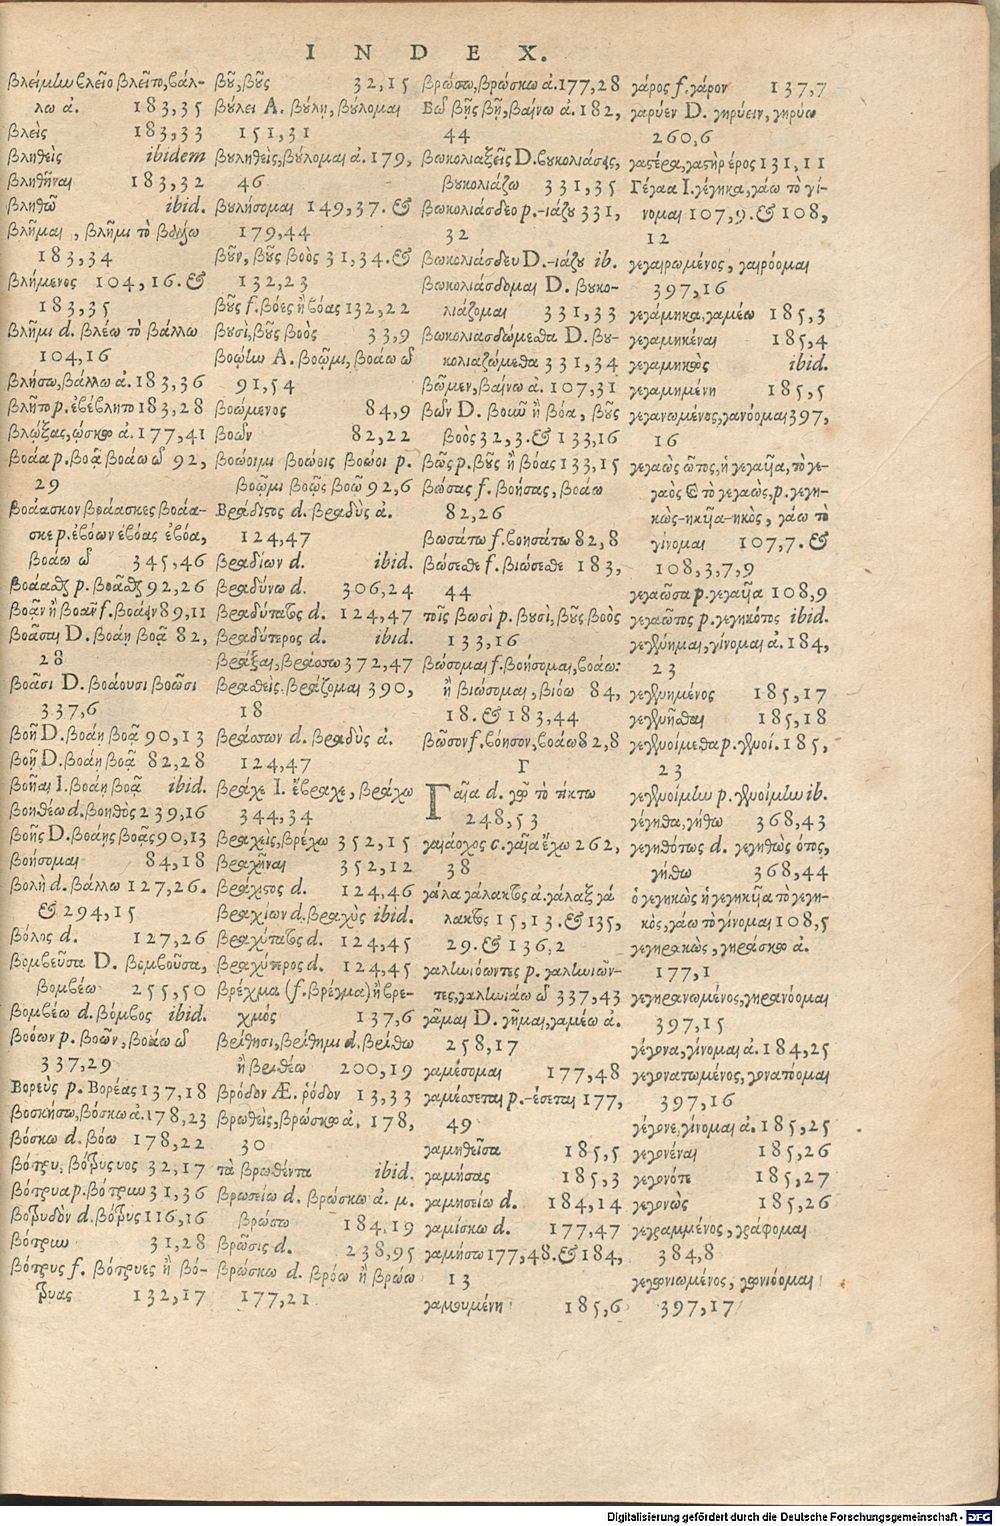 INDEX.
βλείμην βλεῖο βλεῖτο, βάλ-
λω ἀ. 183,35
βλεὶς 183,33
βληθεὶς ibidem
βληθῆναι 183,32
βληθῶ ibid.
βλῆμαι, βλῆμι τὸ
183,34
βλήμενος 104,16. &
183,35
βλῆμι d. βλέω τὸ βάλλω
104,16
βλήσω, βάλλω ἀ. 183,36
βλῆτο p. ἐβέβλητο 183,28
βλώξας, ώσκω ἀ. 177,41
βοάα p. βοᾷ βοάω ῶ 92,
29
βοάασκον βοάασκες βοάα-
σκε p. ἐβόων ἐβόας ἐβόα,
βοάω ῶ 345,46
βοάαθς p. βοᾶθς 92,26
βοᾷν ἢ βοαῒ f. βοάειν 89,11
βοᾶσαι D. βοάῃ βοᾷ 82,
28
βοᾶσι D. βοάουσι βοῶσι
337,6
βοῆ D. βοάῃ βοᾷ 90,13
βοῇ D. βοάῃ βοᾷ 82,28
βοῆαι I. βοάῃ βοᾷ ibid.
βοηθέω d. βοηθὸς 239,16
βοῇς D. βοάῃς βοᾷς 90,13
βοήσομαι 84,18
βολὴ d. βάλλω 127,26.
& 294,15
βόλος d. 127,26
βομβεῦσα D. βομβοῦσα,
βομβέω 255,50
βομβέω d. βόμβος ibid.
βοόων p. βοῶν, βοάω ῶ
337,29
Βορεὺς p. Βορέας 137,18
βοσκήσω, βόσκω ἀ. 178,23
βόσκω d. βόω 178,22
βότρυ, βότρυς υος 32,17
βότρυα p. βότρυν 31,36
βοτρυδὸν d. βότρυς 116,16
βότρυν 31,28
βότρυς f. βότρυες ἢ βό-
τρυας 132,17
βοῦ, βοῦς 32,15
βούλει A. βούλῃ, βούλομαι
151,31
βουληθεὶς, βούλομαι ἀ. 179,
46
βουλήσομαι 149,37. &
179,44
βοῦν, βοῦς βοὸς 31,34. &
132,23
βοῦς f. βόες ἢ βόας 132,22
βουσὶ, βοῦς βοὸς 33,9
βοῴην A. βοῷμι, βοάω ῶ
91,54
βοώμενος 84,9
βοῶν 82,22
βοώοιμι βοώοις βοώοι p.
βοῷμι βοῷς βοῷ 92,6
Βράδιστος d. βραδὺς ἀ.
124,47
βραδίων d. ibid.
βραδύνω d. 306,24
βραδύτατος d. 124,47
βραδύτερος d. ibid.
βράξαι, βράσσω 372,47
βραθεὶς. βράζομαι 390,
18
βράσσων d. βραδὺς ἀ.
124,47
βράχε I. ἔβραχε, βράχω
344,34
βραχεὶς, βρέχω 352,15
βραχῆναι 352,12
βράχιστος d. 124,46
βραχίων d. βραχὺς ibid.
βραχύτατος d. 124,45
βραχύτερος d. 124,45
βρέχμα (f. βρέγμα) ἢ βρε-
χμός 137,6
βρίθησι, βρίθημι d. βρίθω
ἢ βριθέω 200,19
βρόδον Æ. ῥόδον 13,33
βρωθεὶς, βρώσκω ἀ. 178,
30
τὰ βρωθέντα ibid.
βρωσείω d. βρώσκω ἀ. μ.
βρώσω 184,19
βρῶσις d. 238,95
βρώσκω d. βρόω ἢ βρώω
177,21
βρώσω, βρώσκω ἀ. 177,28
Βῶ βῇς βῇ, βαίνω ἀ. 182,
44
βωκολιαξεῖς D. βουκολιάσεις,
βουκολιάζω 331,35
βωκολιάσδεο p. -ιάζου 331,
32
βωκολιάσδευ D. -ιάζου ib.
βωκολιάσδομαι D. βουκο-
λιάζομαι 331,33
βωκολιασδώμεθα D. βου-
κολιαζώμεθα 331,34
βῶμεν, βαίνω ἀ. 107,31
βῶν D. βοῦν ἢ βόα, βοῦς
βοὸς 32,3. & 133,16
βῶς p. βοῦς ἢ βόας 133,15
βώσας f. βοήσας, βοάω
82,26
βωσάτω f. βοησάτω 82,8
βώσεσθε f. βιώσεσθε 183,
44
τοῖς βωσὶ p. βουσὶ, βοῦς βοὸς
133,16
βώσομαι f. βοήσομαι, βοάω:
ἢ βιώσομαι, βιόω 84,
18. & 183,44
βῶσον f. βόησον, βοάω 82,8
Γ
Γαῖα d. γῶ τὸ τίκτω
248,53
γαιάοχος c. γαῖα ἔχω 262,
38
γάλα γάλακτος ἀ. γάλαξ γά
λακτος 15,13. & 135,
29. & 136,2
γαληνιόωντες p. γαληνιῶν-
τες, γαληνιάω ῶ 337,43
γᾶμαι D. γῆμαι, γαμέω ἀ.
258,17
γαμέσομαι 177,48
γαμέσσεται p. -έσεται 177,
49
γαμηθεῖσα 185,5
γαμήσας 185,3
γαμησείω d. 184,14
γαμίσκω d. 177,47
γαμήσω 177,48. & 184,
13
γαμουμένη 185,6
γάρος f. γάρον 137,7
γαρύεν D. γηρύειν, γηρύω
260,6
γαστέρα, γαστὴρ έρος 131,11
Γέγαα I. γέγηκα, γάω τὸ γί-
νομαι 107,9. & 108,
12
γεγαιρωμένος, γαιρόομαι
397,16
γεγάμηκα, γαμέω 185,3
γεγαμηκέναι 185,4
γεγαμηκὼς ibid.
γεγαμημένη 185,5
γεγανωμένος, γανόομαι 397,
16
γεγαὼς ῶτος, ἡ γεγαυῖα, τὸ γε-
γαὸς & τὸ γεγαὼς, p. γεγη-
κὼς -ηκυῖα -ηκὸς, γάω τὸ
γίνομαι 107,7. &
108,3,7,9
γεγαῶσα p. γεγαυῖα 108,9
γεγαῶτος p. γεγηκότος ibid.
γεγένημαι, γίνομαι ἀ. 184,
23
γεγενημένος 185,17
γεγενῆσθαι 185,18
γεγενοίμεθα p. γενοί. 185,
23
γεγενοίμην p. γενοίμην ib.
γέγηθα, γήθω 368,43
γεγηθότως d. γεγηθὼς ότος,
γήθω 368,44
ὁ γεγηκὼς ἡ γεγηκυῖα τὸ γεγη-
κὸς, γάω τὸ γίνομαι 108,5
γεγηρακὼς, γηράσκω ἀ.
177,1
γεγηρανωμένος, γηρανόομαι
397,15
γέγονα, γίνομαι ἀ. 184,25
γεγονατωμένος, γονατόομαι
397,16
γέγονε, γίνομαι ἀ. 185,25
γεγονέναι 185,26
γεγονότε 185,27
γεγονὼς 185,26
γεγραμμένος, γράφομαι
384,8
γεγωνιωμένος, γωνιόομαι
397,17
Digitalisierung gefördert durch die Deutsche Forschungsgemeinschaft - DFG